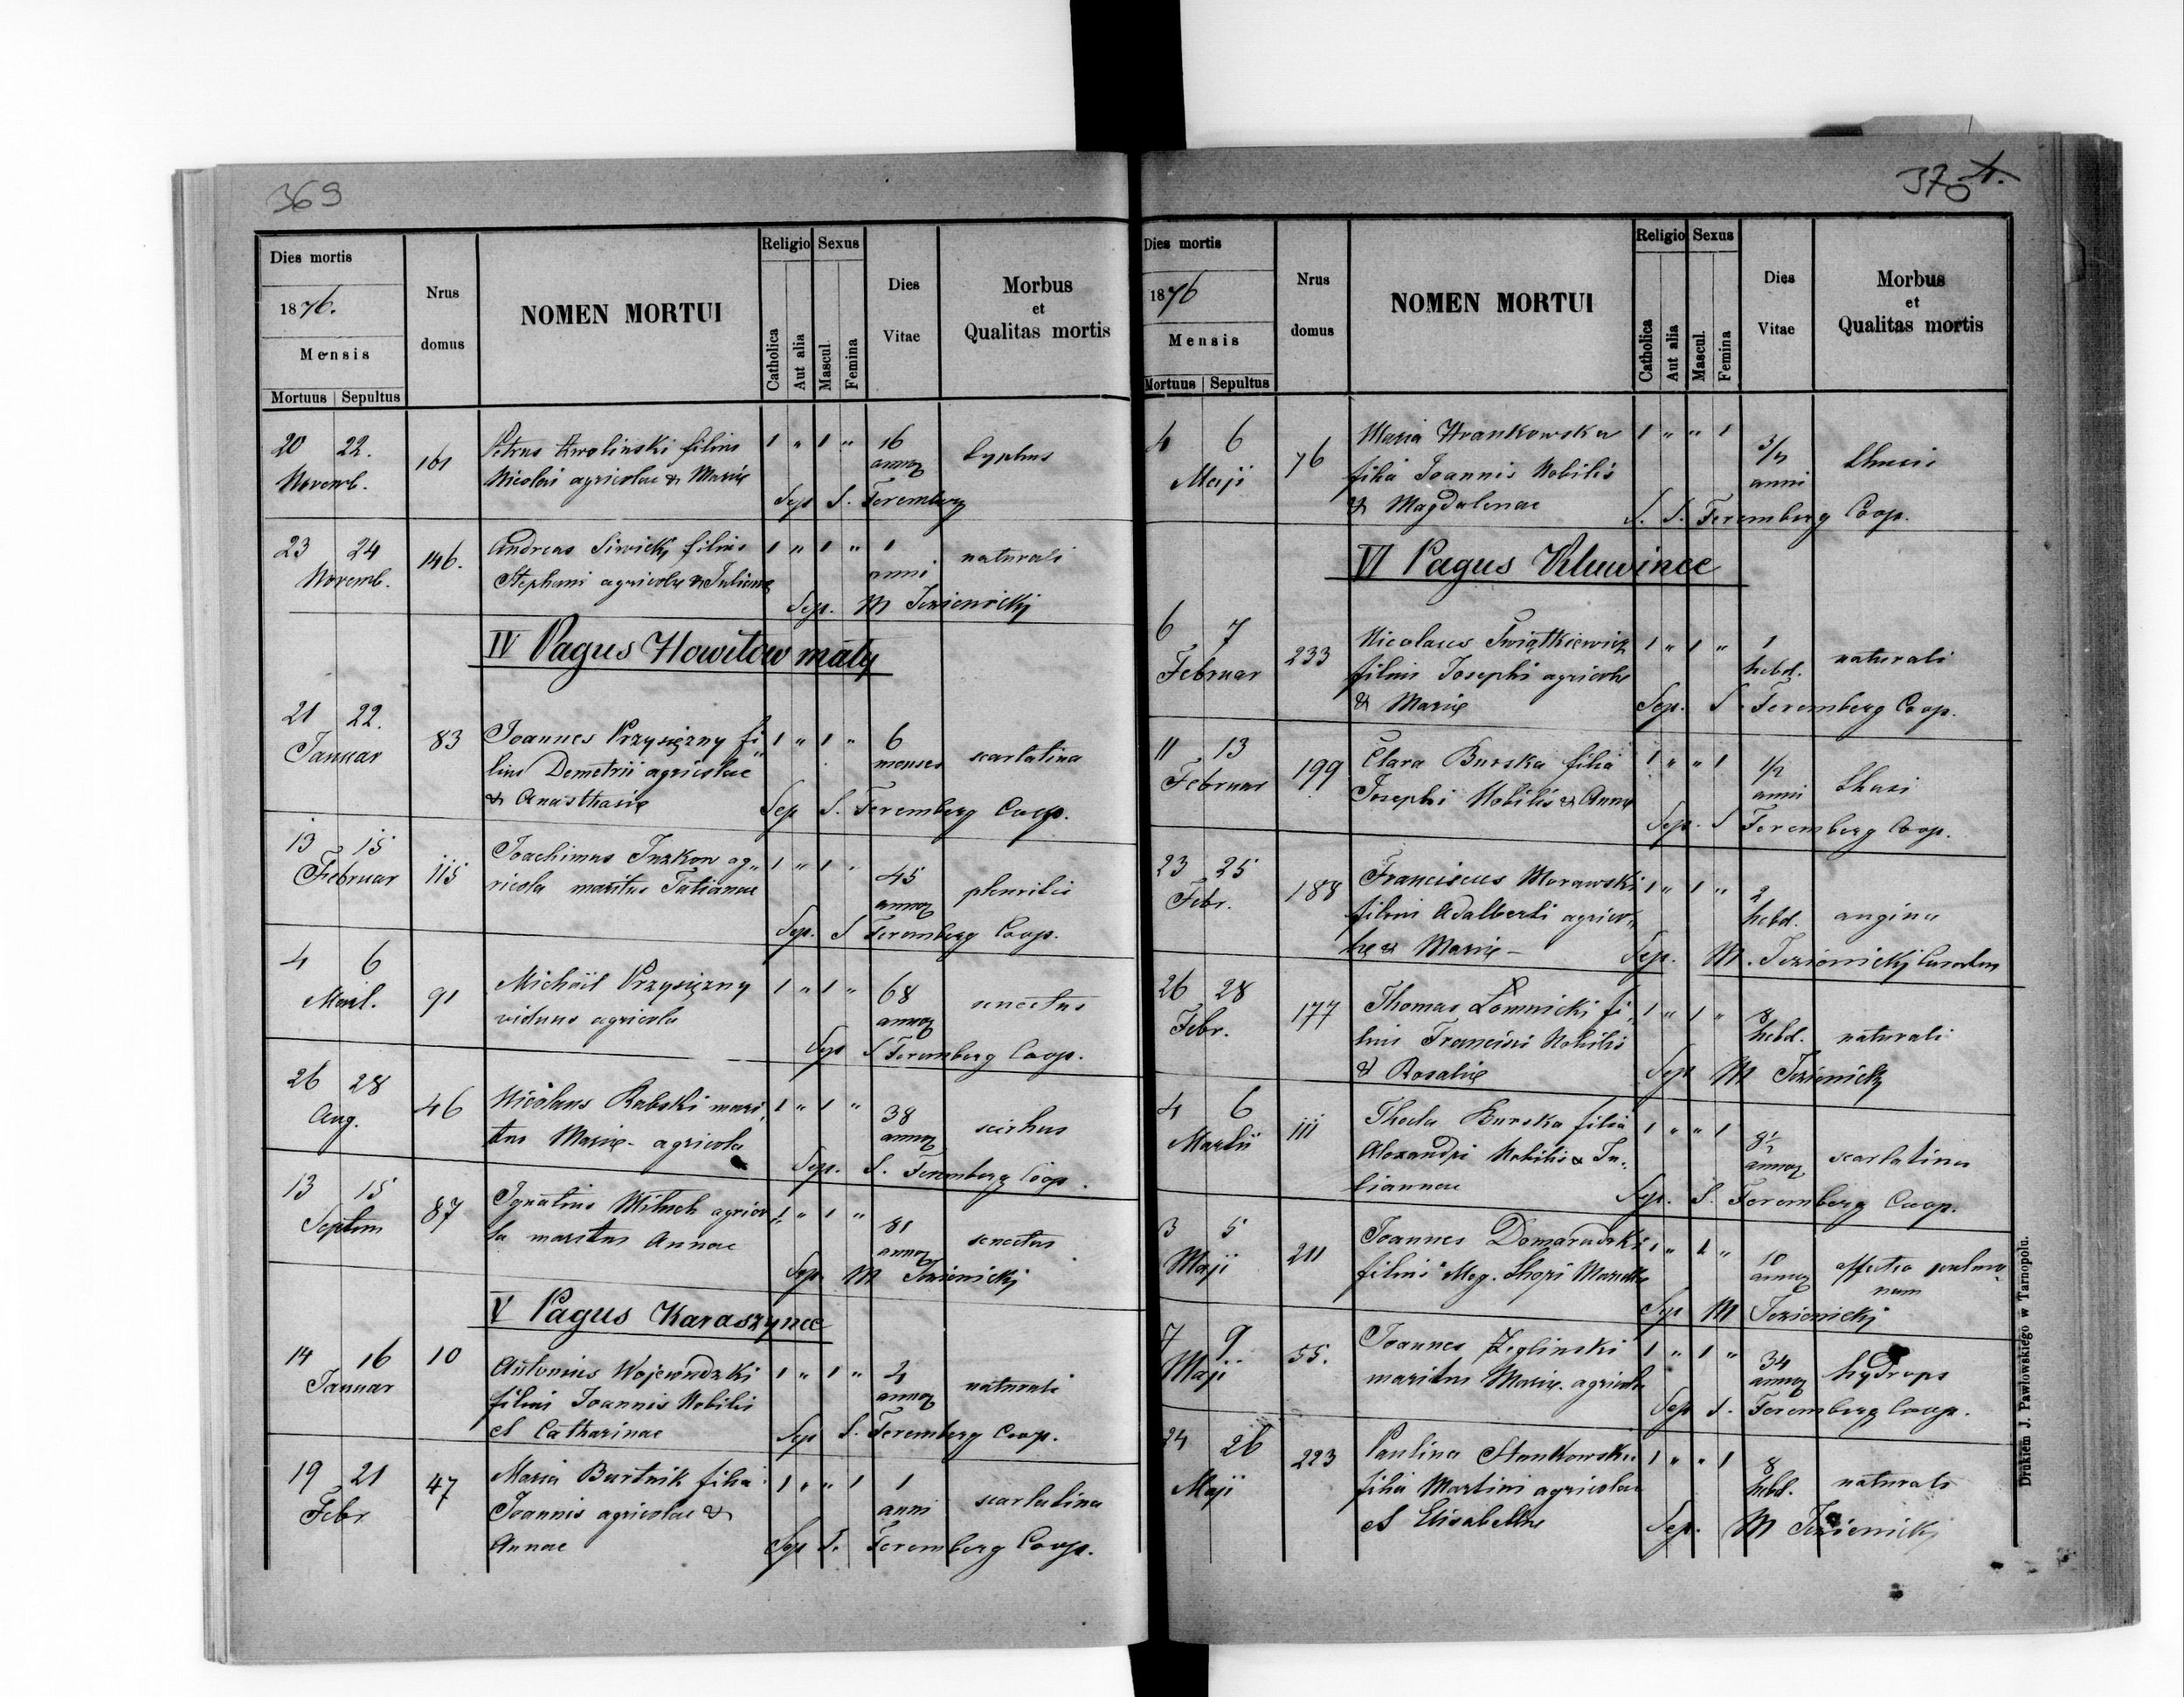 369
Dies mortis
1876.
Mensis
Mortuus | Sepultus
Nrus domus
NOMEN MORTUI
Religio
Catholica
Aut alia
Sexus
Mascul.
Femina
Dies Vitae
Morbus et Qualitas mortis
20 22. Novemb. 161 Petrus Kwolinski filius 1 " 1 " 16 annoꝝ typhus
Nicolai agricolae & Mariæ
Sep S. Feremberg
23 24 Novemb. 146. Andreas Siwicky filius 1 " 1 " 1 anni naturali
Stephani agricolæ & Julianæ
Sep. M Jezienickÿ
IV Pagus Howiłow mały
21 22. Januar 83 Joannes Przysiężny fi„ 1 " 1 " 6 menses scarlatina
lius Demetrii agricolae
& Anasthasiæ
Sep S. Feremberg Coop.
13 15 Februar 115 Joachimus Juzkow ag„ 1 " 1 " 45 annoꝝ pleuritis
ricola maritus Tatianae
Sep. S Feremberg Coop.
4 6 91 Michäil Przysiężny 1 " 1 " 68 annoꝝ senectus
viduus agricola
Sep S Feremberg Coop.
26 28 Aug. 46 Nicolaus Babski mari„ 1 " 1 " 38 annoꝝ scirhus
tus Mariæ - agricola
Sep. S. Feremberg Coop.
13 15 Septem 87 Ignatius agrico„ 1 " 1 " 81 annoꝝ senectus
la maritus Annae
Sep. M Jezienickÿ
V Pagus Karaszynce
14 16 Januar 10 Antonius Wojewudzki 1 " 1 " annoꝝ naturali
filius Joannis Nobilis
et Catharinae
Sep S. Feremberg Coop.
19 21 Febr 47 Maria Burtnik filia 1 " " 1 1 anni scarlatina
Joannis agricolae &
Annae
Sep S. Feremberg Coop.
370
Dies mortis
1876
Mensis
Mortuus | Sepultus
Nrus domus
NOMEN MORTUI
Religio
Catholica
Aut alia
Sexus
Mascul.
Femina
Dies Vitae
Morbus et Qualitas mortis
4 6 Maji 76 Maria Hrankowska 1 " " 1 anni
filia Joannis Nobilis
& Magdalenae
S. S. Feremberg Coop.
VI Pagus Kluwince
6 7 Februar 233 Nicolaus Świątkiewicz 1 " 1 " 1 hebd. naturali
filius Josephi agricolæ
& Mariæ
Sep. S. Feremberg Coop.
11 13 Februar 199 Clara Burska filia 1 " " 1 1/2 anni
Josephi Nobilis & Annæ
Sep. S Feremberg Coop.
23 25 Febr. 188 Franciscus Morawski 1 " 1 " 2 hebd. angina
filius Adalberti agrico„
læ & Mariæ -
Sep. M. Jezienickÿ
26 28 Febr. 177 Thomas Łomnicki fi„ 1 " 1 " 8 hebd. naturali
lius Francisci Nobilis
& Rosaliæ
Sep M Jezienicky
4 6 Martii 111 Thecla Burska filia 1 " " 1 8½ annoꝝ scarlatina
Alexandri Nobilis & Ju„
liannae
Sep. S. Feremberg Coop.
3 5 Maji 211 Joannes Domaradzki 1 " 1 " 10 annoꝝ
filius
Sep M Jezienickÿ
7 9 Maji 55. Joannes Żeglinski 1 " 1 " 34 annoꝝ hydrops
maritus Mariæ. agricola
Sep S. Feremberg Coop.
24 26 Maji 223 Paulina Hankowska 1 " " 1 8 hebd. naturali
filia Martini agricolae
et Elisabethæ
Sep. M Jezienicki
Drukiem J. Pawłowskiego w Tarnopolu.